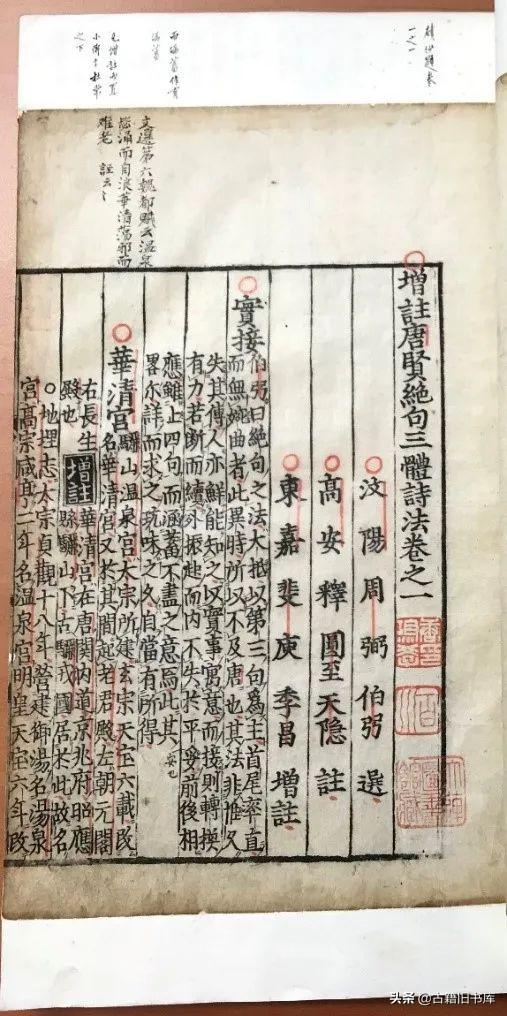 文選第六魏都賦云温泉
毖涌而自浪華清蕩邪而
难老　註云〻
增註唐賢絶句三體詩法卷之一
汶陽周弼伯弜選
高安釋圓至天隐註
東嘉裴庾季昌增註
實接
伯弜曰絶句之法大抵以第三句爲主首尾率直
而無婉曲者此異時所以不及唐也其法非惟久
失其傳人亦鮮能知之以實事寓意而接則轉換
有力若断而續外振起而内不失於平妥前後相
應雖止四句而涵蓄不盡之意焉此其
畧尔詳而求之玩味之久自當有所得
華清宫
驪山温泉宫太宗所建玄宗天宝六載改
名華清宫又於其間起老君殿左朝元閣
右長生
殿也
增註
華清宫在唐関内道京兆府昭應
縣驪山下古驪戎國居於此故名
○地理志太宗貞觀十八年营建御湯名湯泉
宫高宗咸亨二年名温泉宫明皇天宝六年改
头条 @古籍旧书库